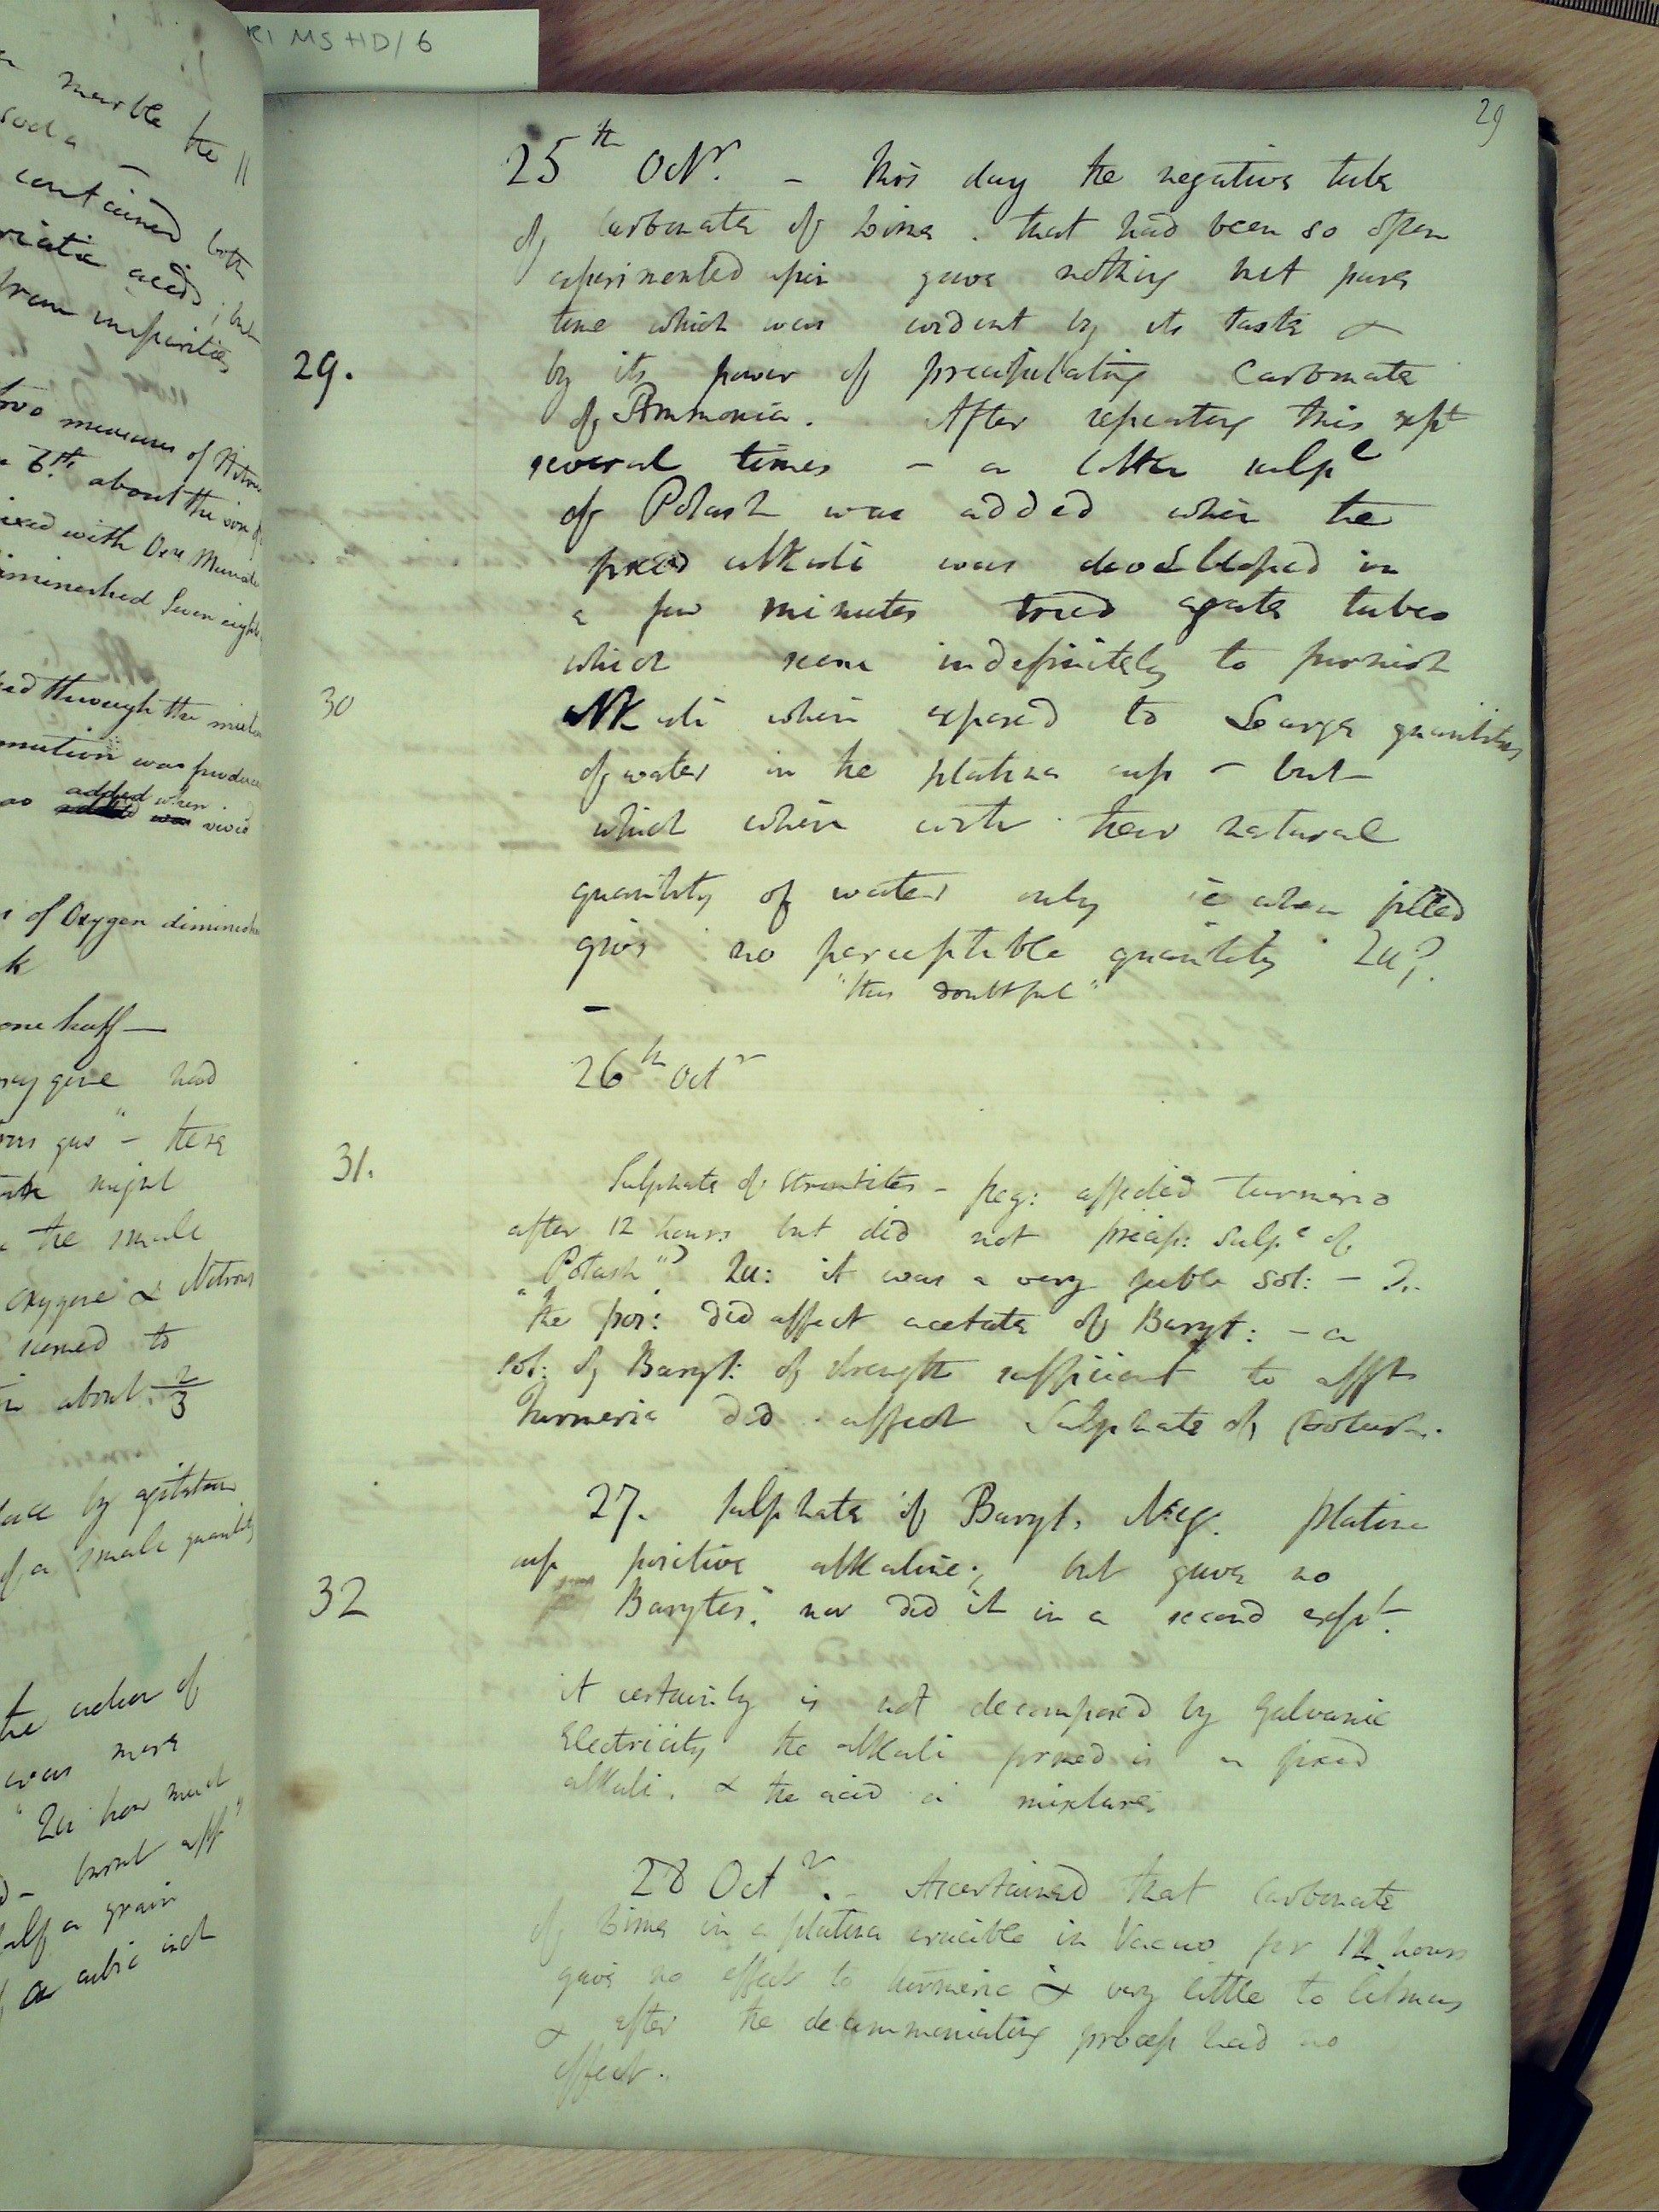 RI MS HD/6
marble the 11
soda —
contained both
acids; but
from impurities
two measures of Nitrous
6th. about the
mixed with Oxy Muriate
diminished Seven eighths
through the
was produced
added when
added was vivid
of Oxygen diminished
one half —
oxygene had
gas" — these
might
the small
oxygene & Nitrous
seemed to
about 2/3
by agitation
of a small quantity
the action of
was more
"Qu how much
— burnt off"
half a grain
a cubic inch
29
25th Octr. — This day the negative tube
of Carbonate of Lime . that had been so often
experimented upon gave nothing but pure
lime which was evident by its taste &
29.
by its power of precipitating Carbonate
of Ammonia. After repeating this expt
several times — a little sulpe
of Potash was added when the
fixed alkali was developed in
a few minutes tried agate tubes
which seem indefinitely to furnish
30
Alkali when exposed to Large quantities
of water in the platina cup — but
which when with their natural
quantity of water only ie when filled
give no perceptible quantity Qu?.
"this doubtful"
—
26th Octr
31.
Sulphate of Strontites — Neg: affected turmeric
after 12 hours but did not precip: Sulpe of
"Potash" Qu: it was a very feeble Sol: — ?.
The pos: did affect acetate of Baryt: — a
sol: of Baryt: of strength sufficient to affect
Turmeric did affect Sulphate of Potash.
27. Sulphate of Baryt. Neg. Platina
cup positive alkaline; but gave no
32
Barytes; nor did it in a second expt.
it certainly is not decomposed by Galvanic
Electricity the alkali formed is a fixed
alkali. & the acid a mixture
28 Octr. — Ascertained that Carbonate
of Lime in a platina crucible in Vacuo for 12 hours
gave no effects to turmeric & very little to litmus
& after the deammoniating process had no
effect.